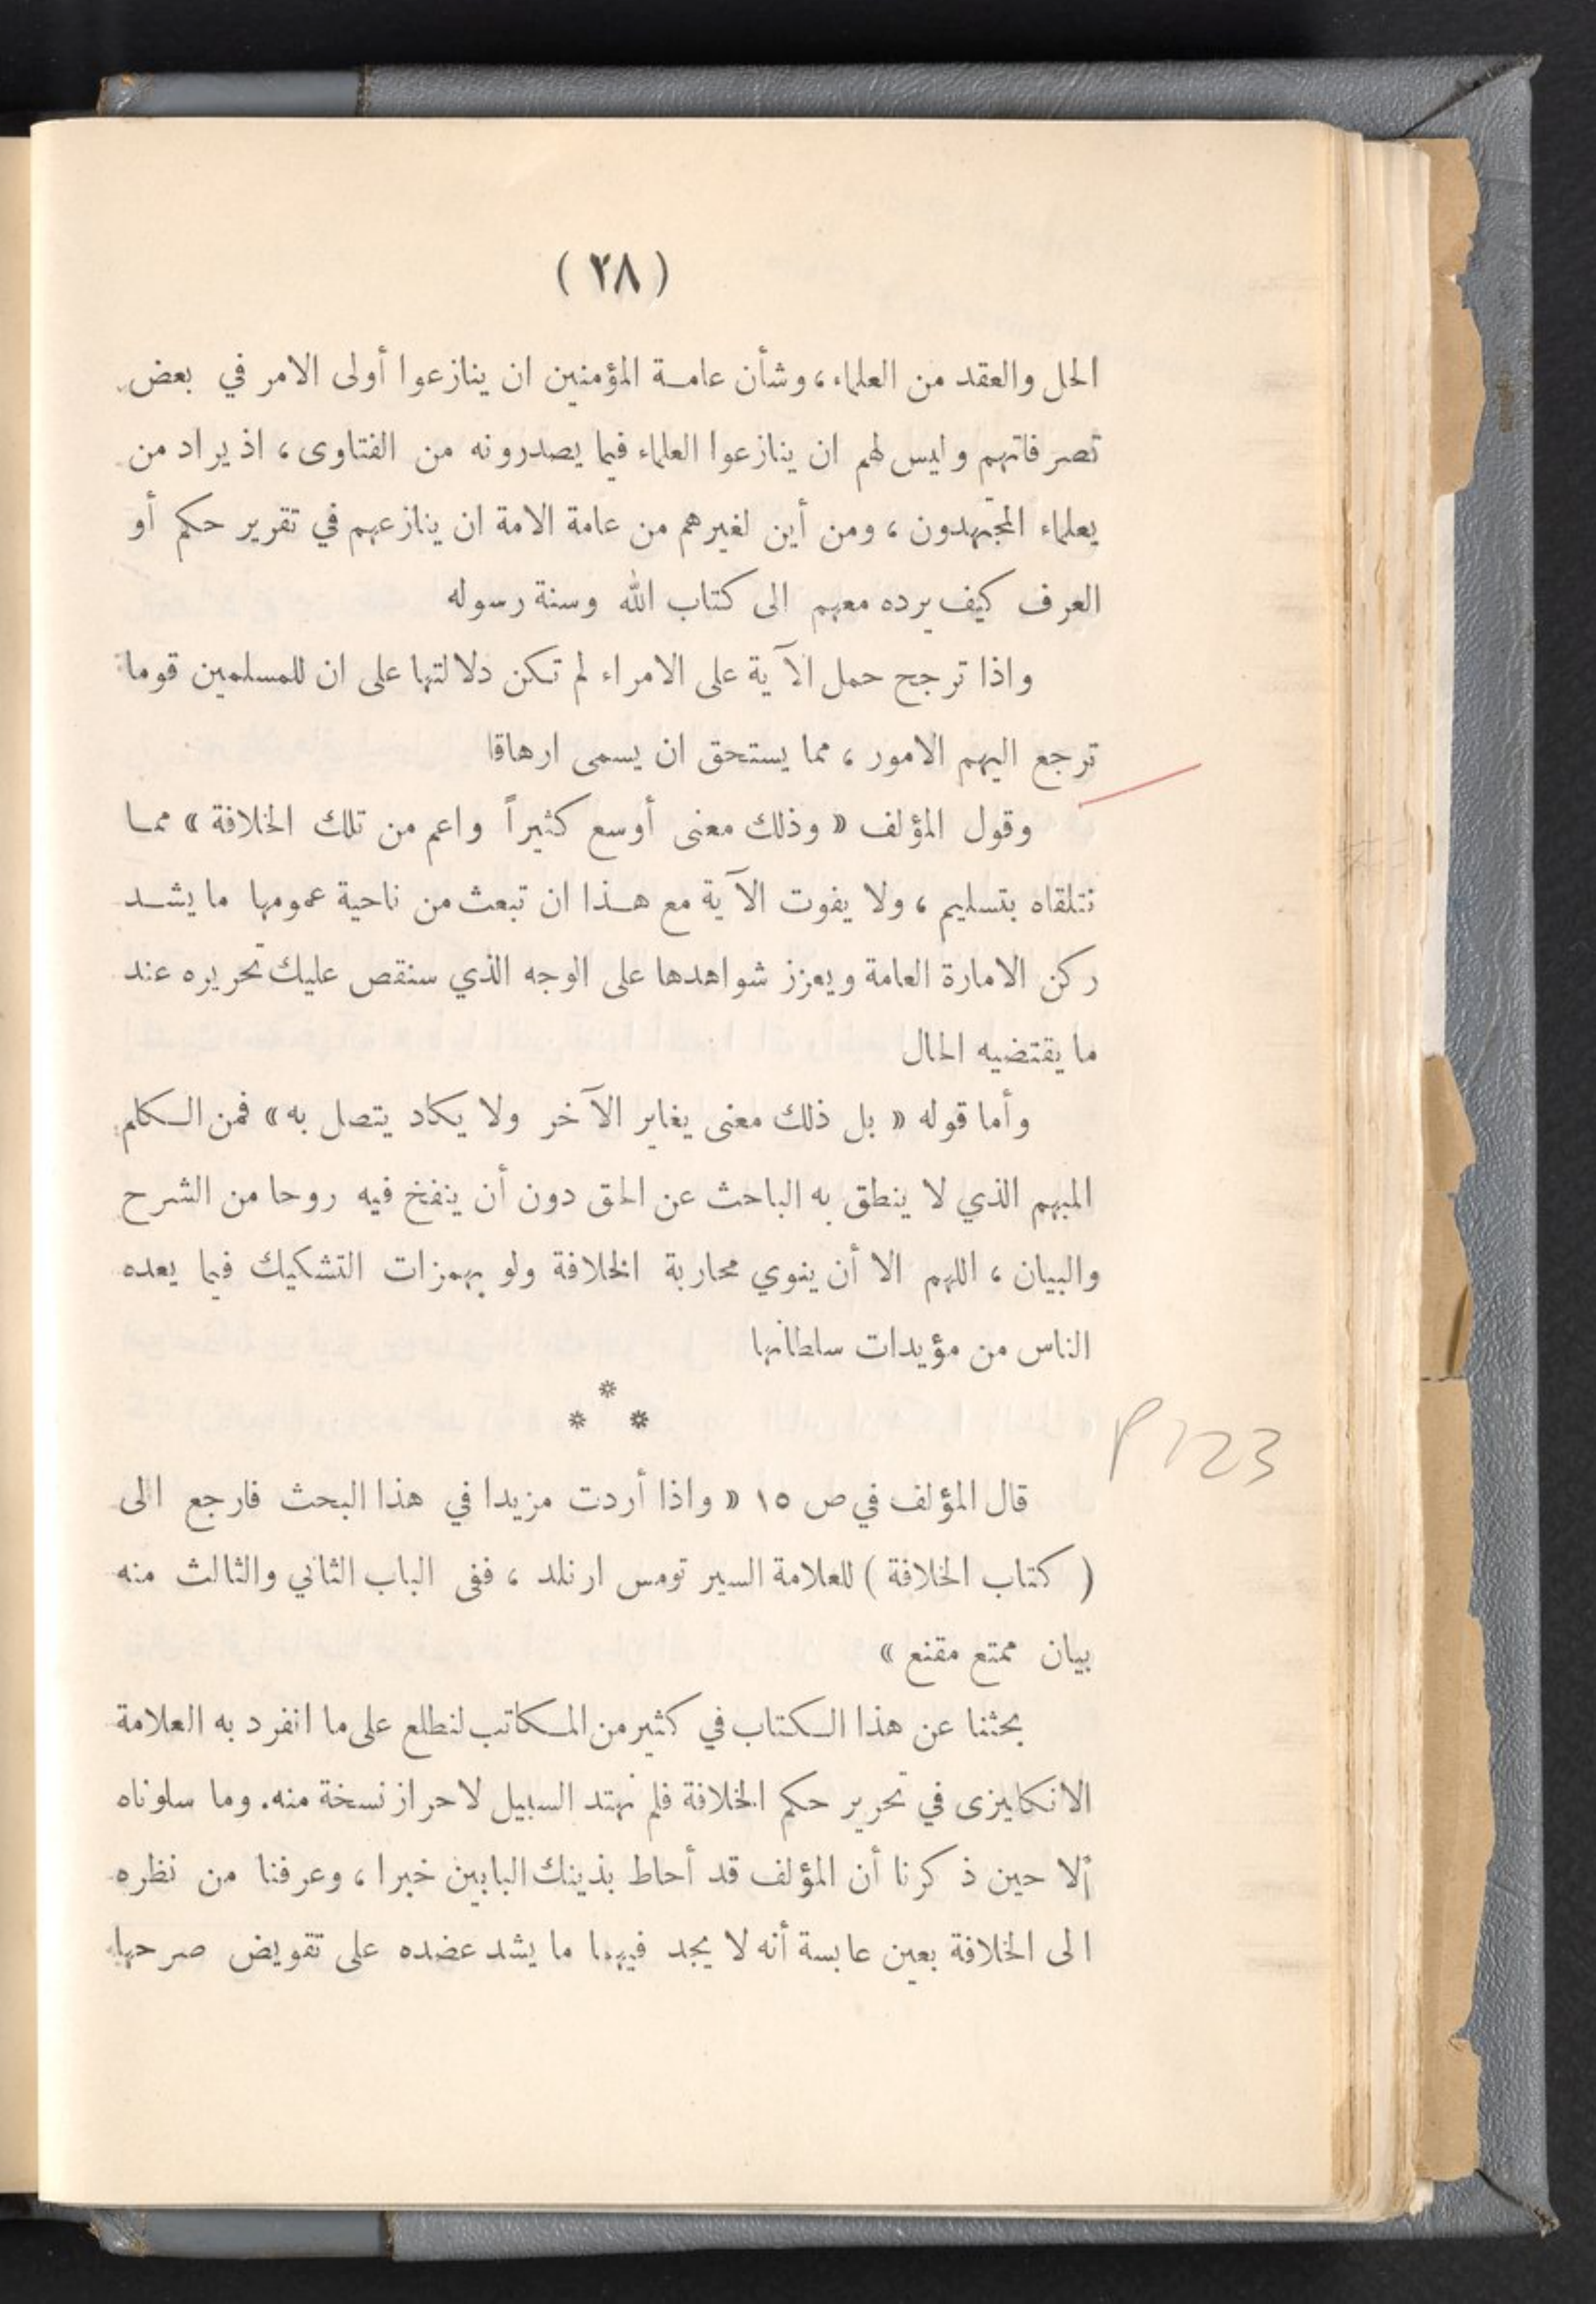 ( ٢٨ )
الحل والعقد من العلماء ، وشأن عامة المؤمنين ان ينازعوا أولى الامر في بعض
تصرفاتهم وليس لهم ان ينازعوا العلماء فيما يصدرونه من الفتاوى ، اذ يراد من
يعلماء المجتهدون ، ومن أين لغيرهم من عامة الامة ان ينازعهم في تقرير حكم أو
العرف كيف يرده معهم الى كتاب الله وسنة رسوله
واذا ترجح حمل الآية على الامراء لم تكن دلالتها على ان للمسلمين قوما
ترجع اليهم الامور ، مما يستحق ان يسمى ارهاقا
وقول المؤلف « وذلك معنى أوسع كثيراً واعم من تلك الخلافة » مما
نتلقاه بتسليم ، ولا يفوت الآية مع هذا ان تبعث من ناحية عمومها ما يشد
ركن الامارة العامة ويعزز شواهدها على الوجه الذي سنقص عليك تحريره عند
ما يقتضيه الحال
وأما قوله « بل ذلك معنى يغاير الآخر ولا يكاد يتصل به » فمن الكلم
المبهم الذي لا ينطق به الباحث عن الحق دون أن ينفخ فيه روحا من الشرح
والبيان ، اللهم الا أن ينوي محاربة الخلافة ولو بهمزات التشكيك فيما يعده
الناس من مؤيدات سلطانها
*
* *
P 123
قال المؤلف في ص ١٥ « واذا أردت مزيدا في هذا البحث فارجع الى
( كتاب الخلافة ) للعلامة السير تومس ارنلد ، ففى الباب الثاني والثالث منه
بيان ممتع مقنع »
بحثنا عن هذا الكتاب في كثير من المكاتب لنطلع على ما انفرد به العلامة
الانكليزى في تحرير حكم الخلافة فلم نهتد السبيل لاحراز نسخة منه. وما سلوناه
إلا حين ذكرنا أن المؤلف قد أحاط بذينك البابين خبرا ، وعرفنا من نظره
الى الخلافة بعين عابسة أنه لا يجد فيهما ما يشد عضده على تقويض صرحها